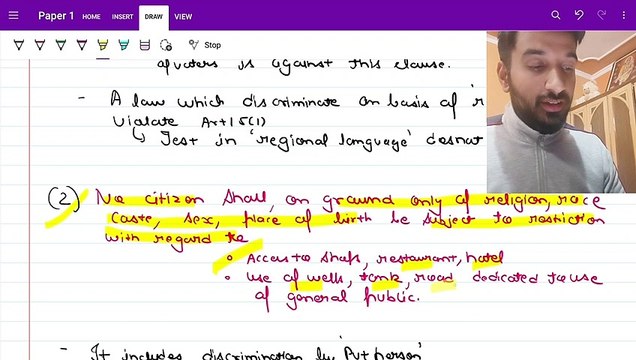 Paper 1
HOME INSERT DRAW VIEW
Stop
quaters is against this clause.
- A law which discriminate on basis of 'r
violate Art 15(1)
↳ Test in 'regional language' doesnot
(2) No citizen shall, on ground only of religion, race
caste, sex, place of birth be subject to restiction
with regard to
• Access to shops, restaurant, hotel
• Use of wells, tank, road dedicated to use
of general public.
- It includes discrimination by 'Pvt person'